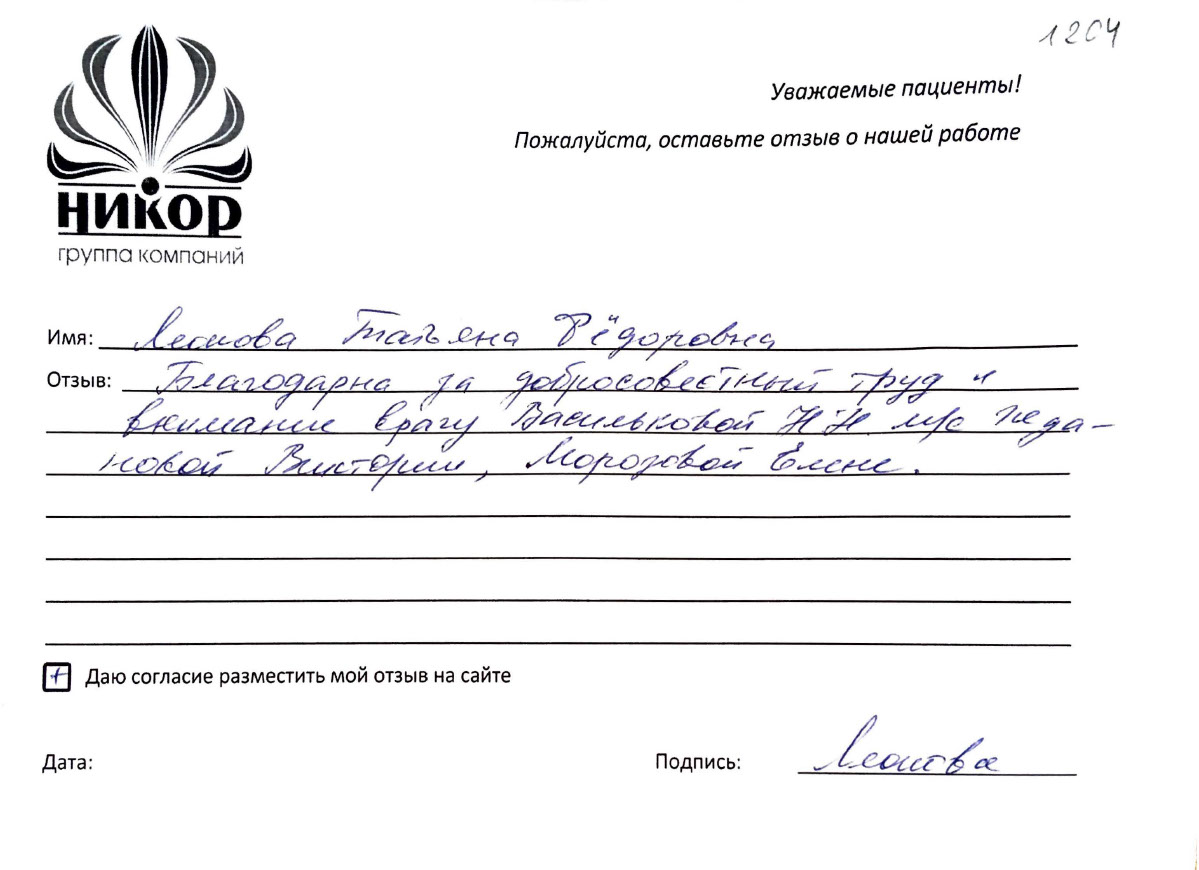 1204
Уважаемые пациенты!
Пожалуйста, оставьте отзыв о нашей работе
НИКОР
группа компаний
Имя: Леонова Татьяна Фёдоровна
Отзыв: Благодарна за добросовестный труд и
внимание врачу Васильковой Н.Н м/с
новой Виктории, Морозовой Елене.
+ Даю согласие разместить мой отзыв на сайте
Дата:
Подпись: Леонова